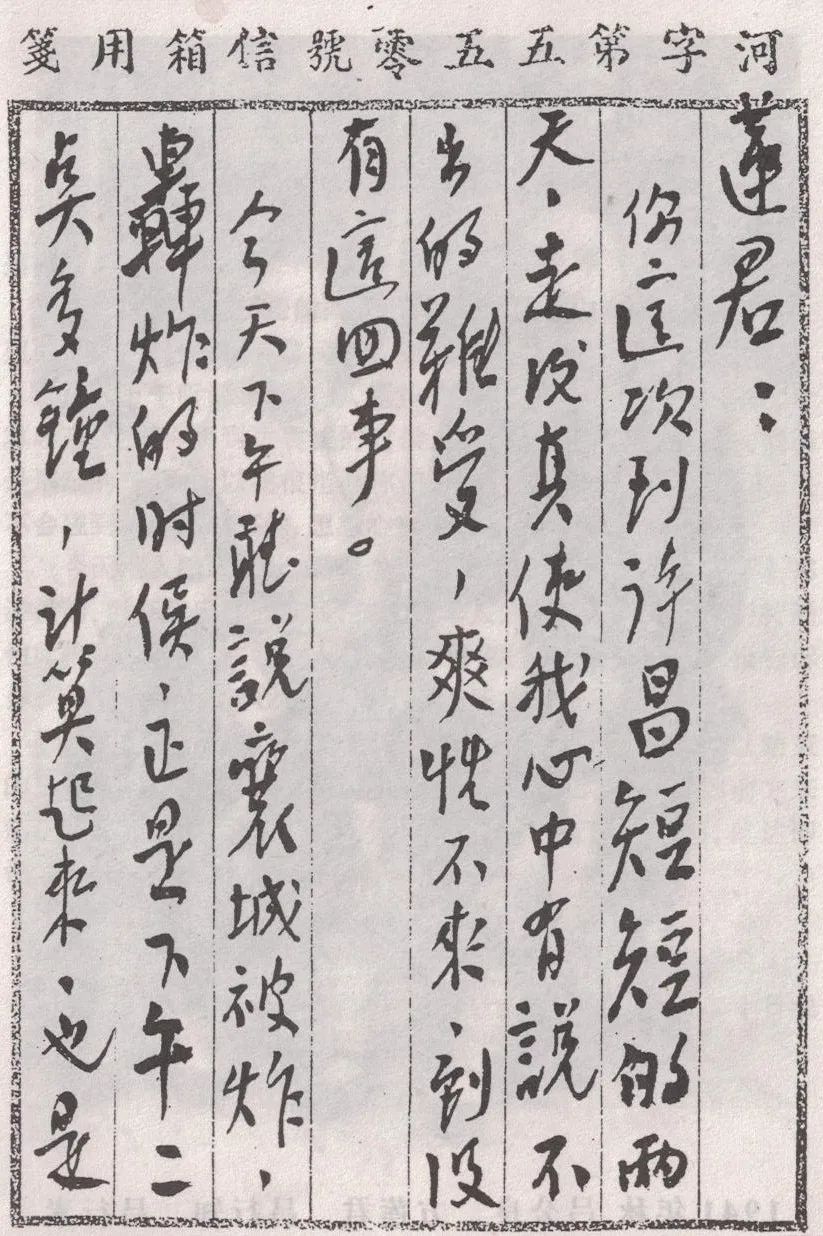 河字第五五零號信箱用箋
蓮君：
你這次到许昌短短的兩
天，走後真使我心中有說不
出的難受，爽性不來，到没
有這回事。
今天下午聽說襄城被炸，
轟炸的时候，正是下午二
奌多鐘，计算起來，也是